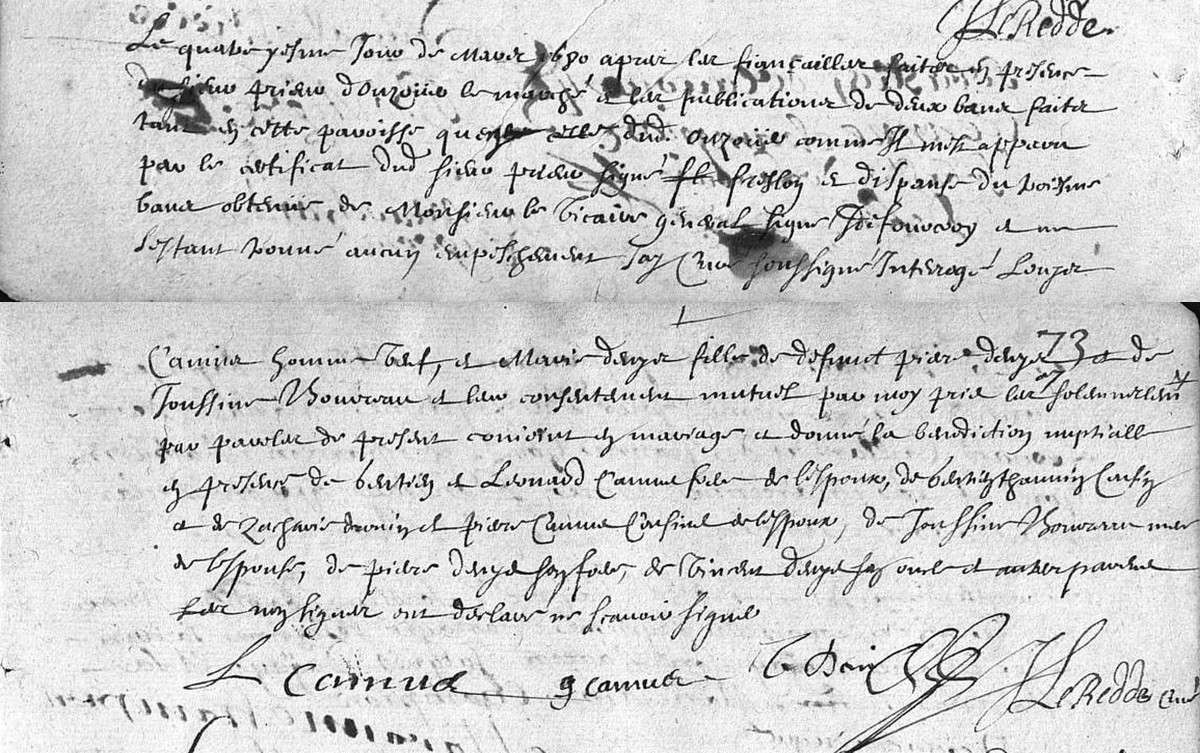 Le Redde
Le quatre yesme Jour de Mars 1680 apres les fiançailles faites en presence
du sieur prieur d'Ouzouer le marché et les publications de deux bans faites
tant en cette paroisse que celle dud. Ouzouer comme Il m'est apparu
par le certificat dud sieur prieur signé freslon et dispanse du troisme
banc obtenue de Monsieur le Vicaire general signé et ne
s'estant trouvé aucun empeschement Jay Curé soussigné Interogé
Camus homme veuf, et Marie fille de defunct piere et de
73
Toussine et leur consentement mutuel par moy pris les ay solennerlemt
par paroles de present conioint en mariage et donné la benediction nuptialle
en presence de bastien et Leonard Camus frere de l'espoux, de
et de Zacharie drouin et piere Camus Cousins de l'espoux, de Toussine mere
de l'espouse, de piere son frere, de Vincent son oncle et autres parens
Les non signes ont declaré ne scavoir signer
L Camus g camus Le Redde Curé